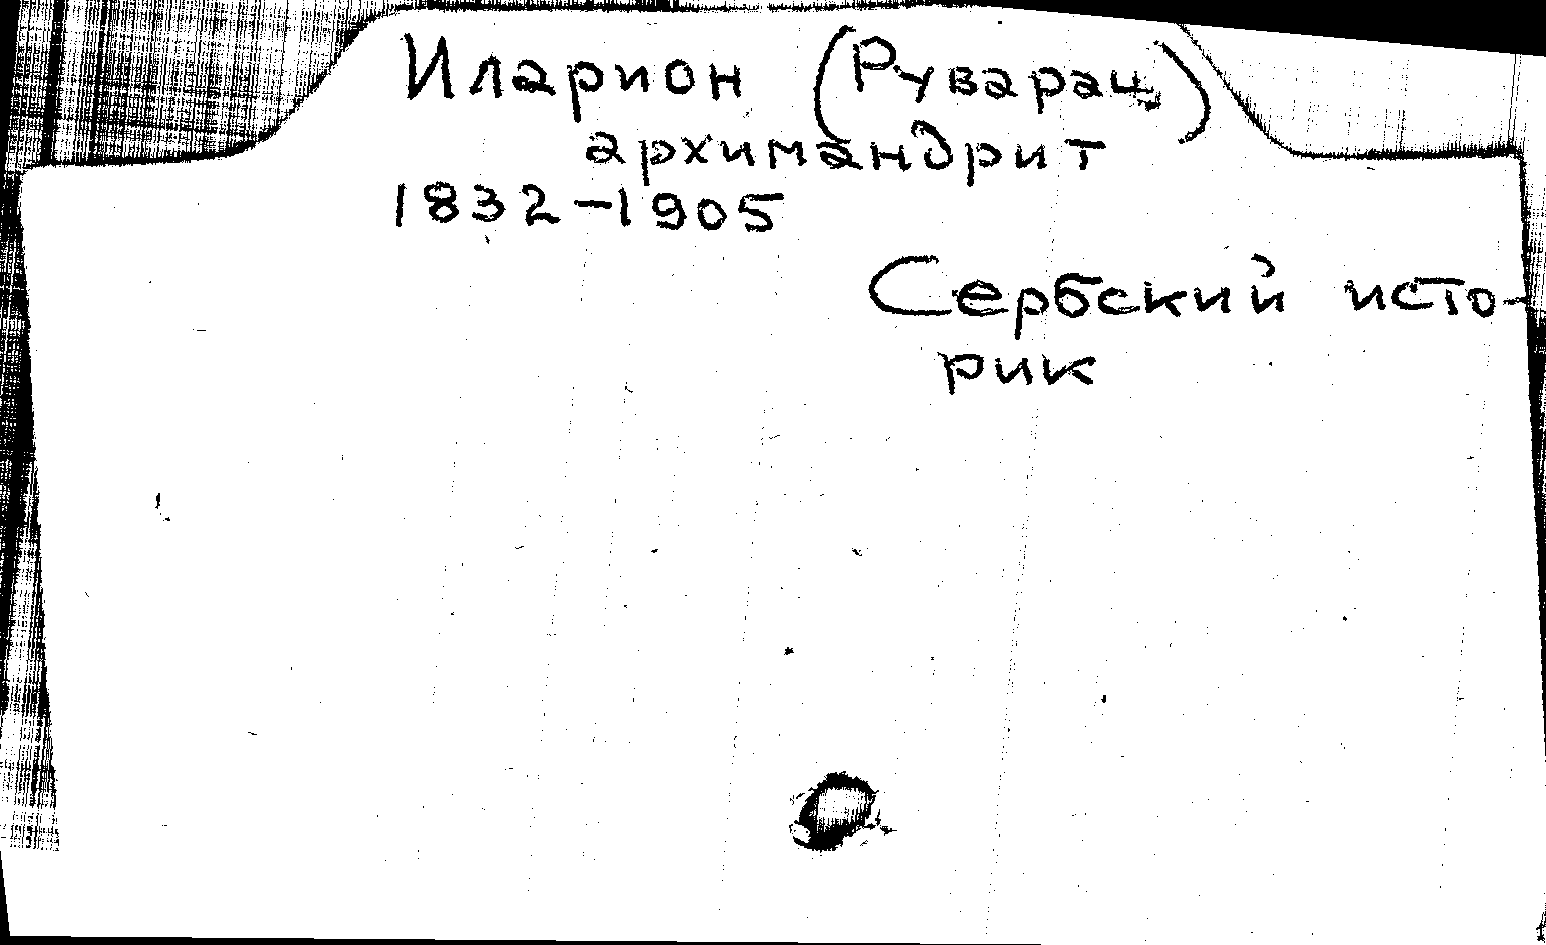 Иларион (Руварац)
архимандрит
1832-1905
Сербский исто-
рик